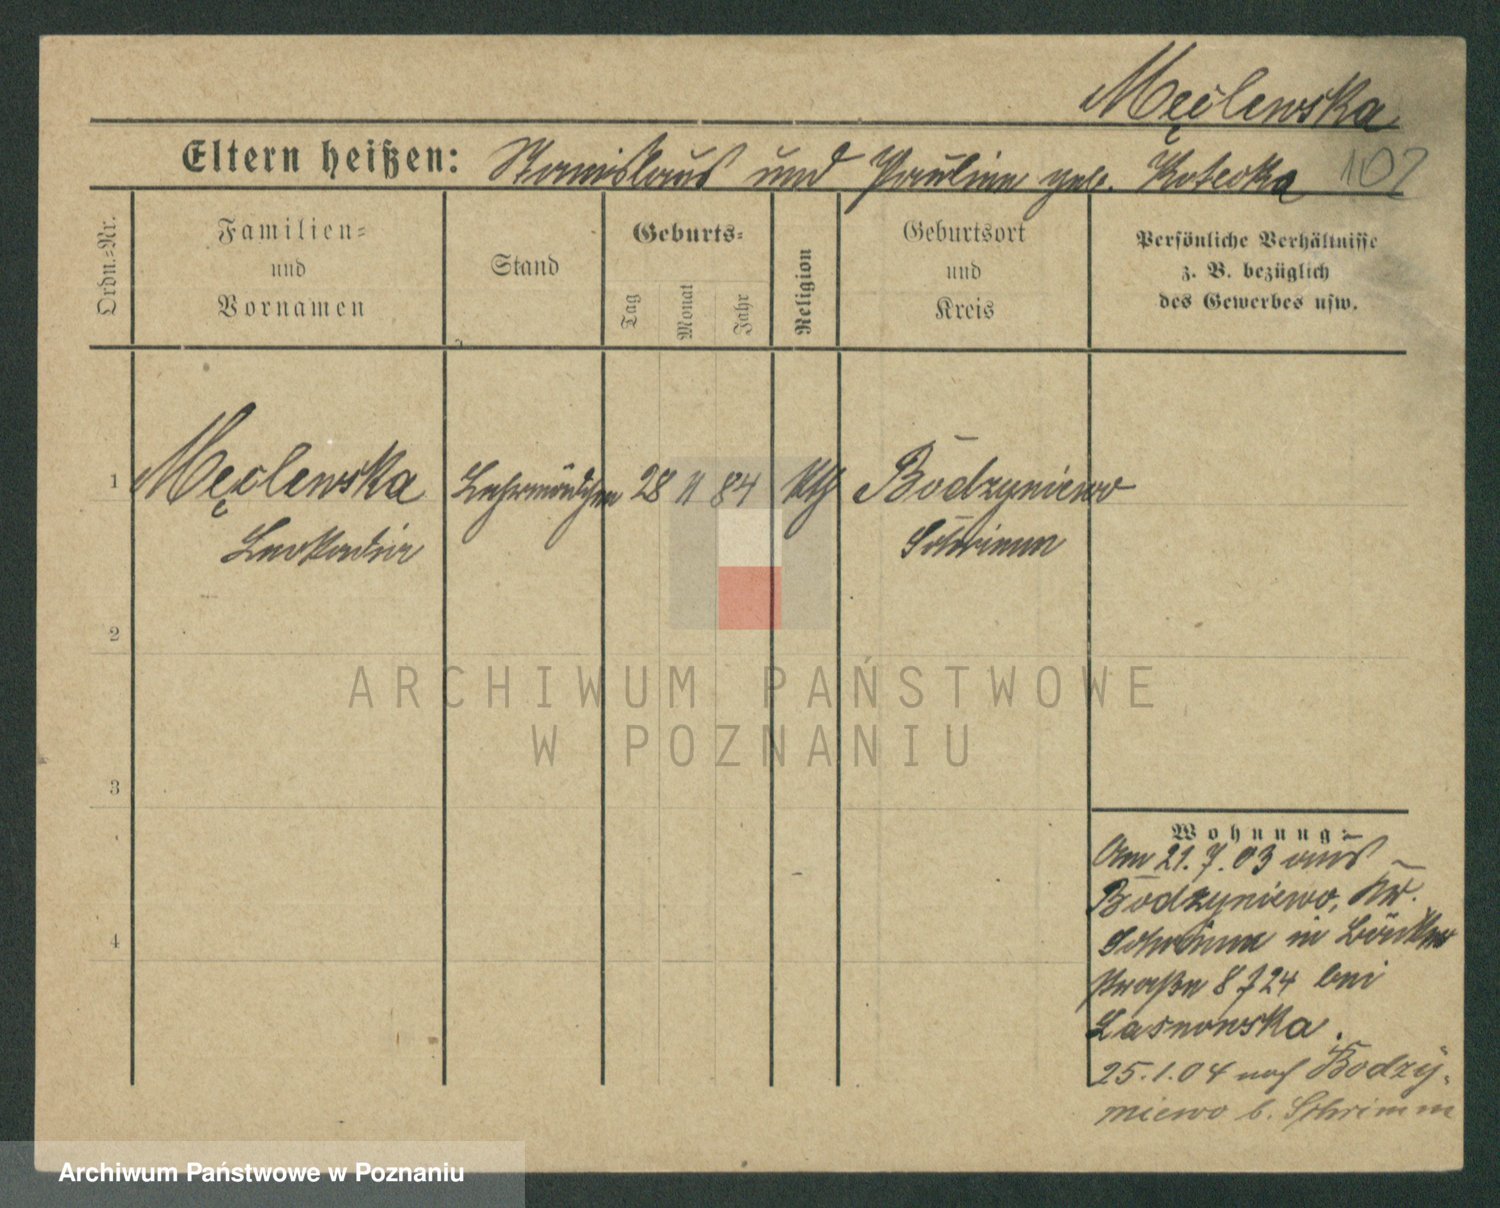 Męclewska
Eltern heißen: Stanislaus und Pauline geb. Kotecka
107
Ordn.-Nr.
Familien-
und
Vornamen
Stand
Geburts-
Tag
Monat
Jahr
Religion
Geburtsort
und
Kreis
Persönliche Verhältnisse
z. B. bezüglich
des Gewerbes usw.
1 Męclewska Lehrmädchen 28 11 84 kth Bodzyniewo
Leokadia Schrimm
2
3
4
Wohnung:
Am 21.7.03 aus
Bodzyniewo, Kr.
Schrimm in
straße 8 J 24 bei
Lasnowska.
25.1.04 nach Bodzy-
niewo b. Schrimm
ARCHIWUM PAŃSTWOWE
W POZNANIU
Archiwum Państwowe w Poznaniu